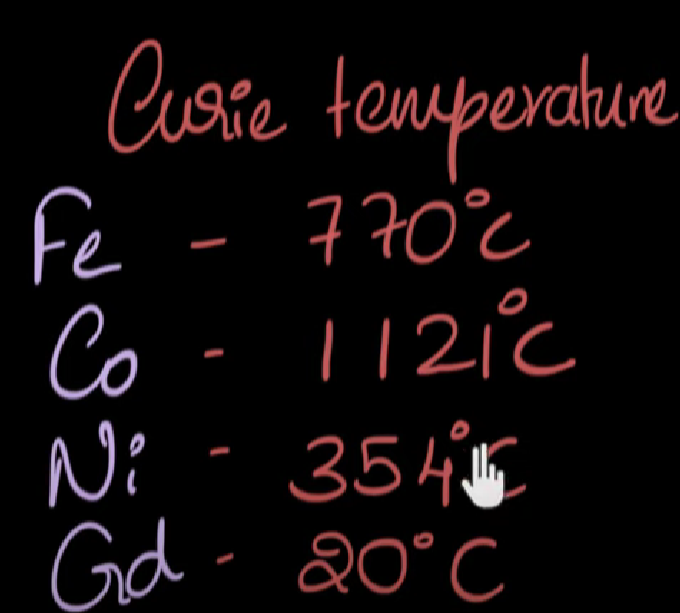 Curie temperature
Fe - 770°C
Co - 1121°C
Ni - 354°C
Gd - 20°C